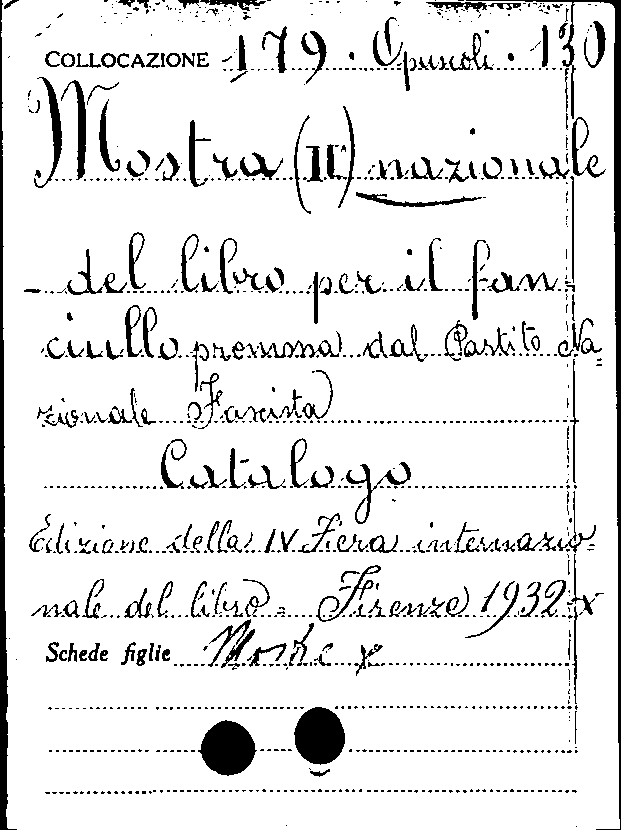 COLLOCAZIONE 179 . Opuscoli . 130
Mostra (II) nazionale
- del libro per il fan-
ciullo promossa dal Partito Na=
zionale Fascista
Catalogo
Edizione della IV Fiera internazio=
nale del libro = Firenze 1932-X
Schede figlie Mostre x